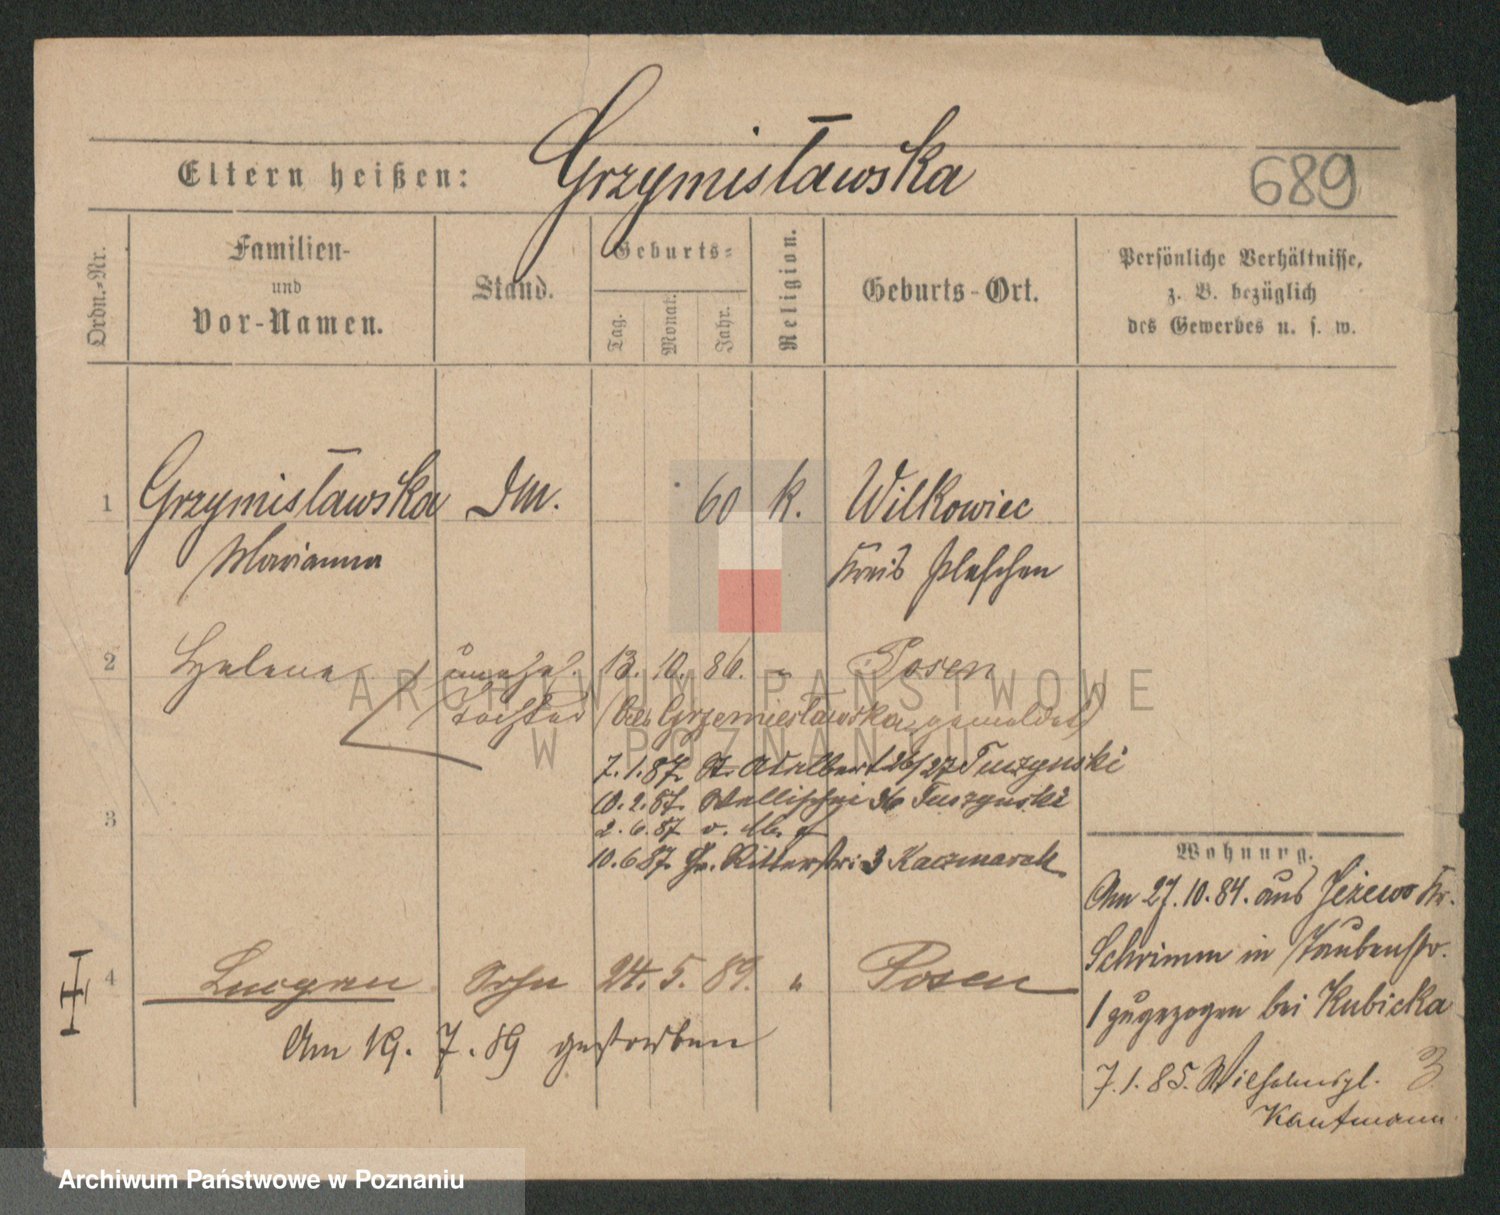 Grzymisławska
Eltern heißen:
689
Ordn.-Nr.
Familien-
und
Vor-Namen.
Stand.
Geburts-
Tag.
Monat.
Jahr.
Religion.
Geburts-Ort.
Persönliche Verhältnisse,
z. B. bezüglich
des Gewerbes u. s. w.
1 Grzymisławska DM. 60 k. Wilkowiec
Marianna Kreis Pleschen
2 Helene unehel. 13. 10. 86. " Posen
Tochter (als Grzemieslawska gemeldet)
ARCHIWUM PAŃSTWOWE
W POZNANIU
7. 1. 87. St. Adalbert 26/27 Tuczynski
10. 2. 87. Wallischei 36 Tuszynski
3
2. 6. 87 v. Mb.
10. 6 87. Gr. Ritterstr. 3 Kaczmarek
Wohnung.
Am 27. 10. 84. aus Jeżewo Kr.
Schrimm in Taubenstr.
1 zugezogen bei Kubicka
7. 1. 85. Wilhelmspl. 3
Kaufmann
4 Lucyan Sohn 24. 5. 89. " Posen
Am 19. 7. 89 gestorben
Archiwum Państwowe w Poznaniu